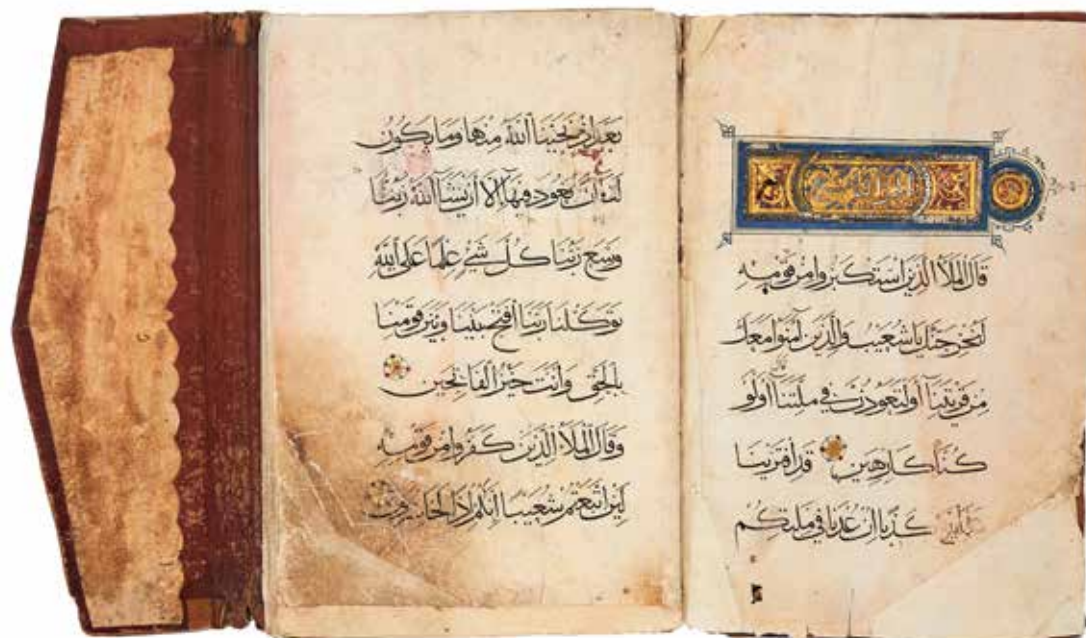 قَالَ الْمَلَأُ الَّذِينَ اسْتَكْبَرُوا مِنْ قَوْمِهِ
لَنُخْرِجَنَّكَ يَا شُعَيْبُ وَالَّذِينَ آمَنُوا مَعَكَ
مِنْ قَرْيَتِنَا أَوْ لَتَعُودُنَّ فِي مِلَّتِنَا قال أَوَلَوْ
كُنَّا كَارِهِينَ قَدِ افْتَرَيْنَا
كَذِبًا إِنْ عُدْنَا فِي مِلَّتِكُمْ
بَعْدَ إِذْ نَجَّيْنَا اللَّهُ مِنْهَا وَمَا يَكُونُ
لَنَا أَنْ نَعُودَ فِيهَا إِلَّا أَنْ يَشَاءَ اللَّهُ رَبُّنَا
وَسِعَ رَبُّنَا كُلَّ شَيْءٍ عِلْمًا عَلَى اللَّهِ
تَوَكَّلْنَا رَبَّنَا افْتَحْ بَيْنَنَا وَبَيْنَ قَوْمِنَا
بِالْحَقِّ وَأَنْتَ خَيْرُ الْفَاتِحِينَ
وَقَالَ الْمَلَأُ الَّذِينَ كَفَرُوا مِنْ قَوْمِهِ
لَئِنِ اتَّبَعْتُمْ شُعَيْبًا إِنَّكُمْ إِذًا لَخَاسِرُونَ